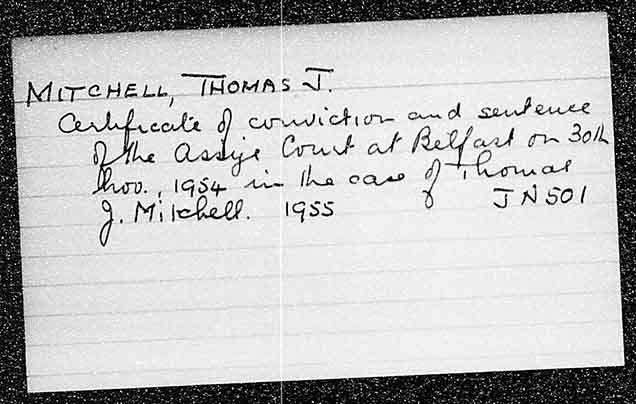 MITCHELL, THOMAS J.
Certificate of conviction and sentence
of the Assize Court at Belfast on 30th
Nov., 1954 in the case of Thomas
J. Mitchell. 1955 JN501